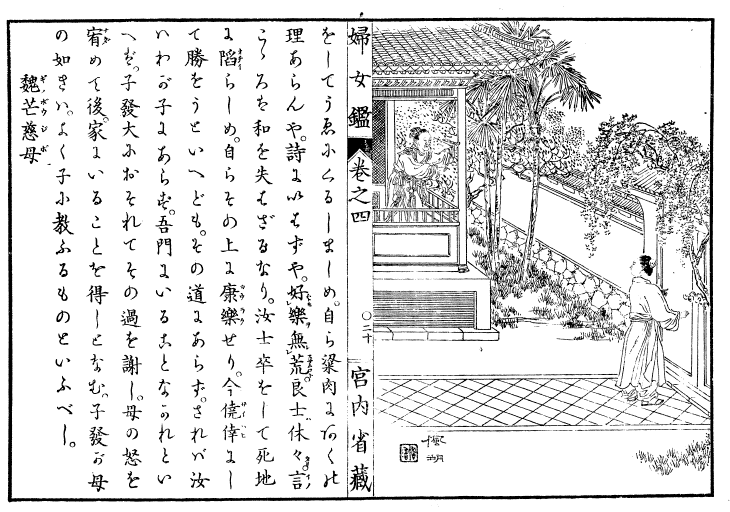 婦女鑑 卷之四 〇二十 宮内省藏
をしてうゑにくるしましめ。自ら粱肉にあく此
理あらんや。詩にいはずや。好樂無荒良士休々言
こゝろを和を失はざるなり。汝士卒をして死地
に蹈らしめ。自らその上に康樂せり。今僥倖にし
て勝をうといへども。その道にあらず。されバ汝
いわが子にあらず。吾門にいることなかれとい
へば。子發大におそれてその過を謝し。母の怒を
宥めて後。家にいることを得しとなむ。子發が母
の如きハ。よく子に教ふるものといふべし。
魏芒慈母
ギノボウジボ
楓湖